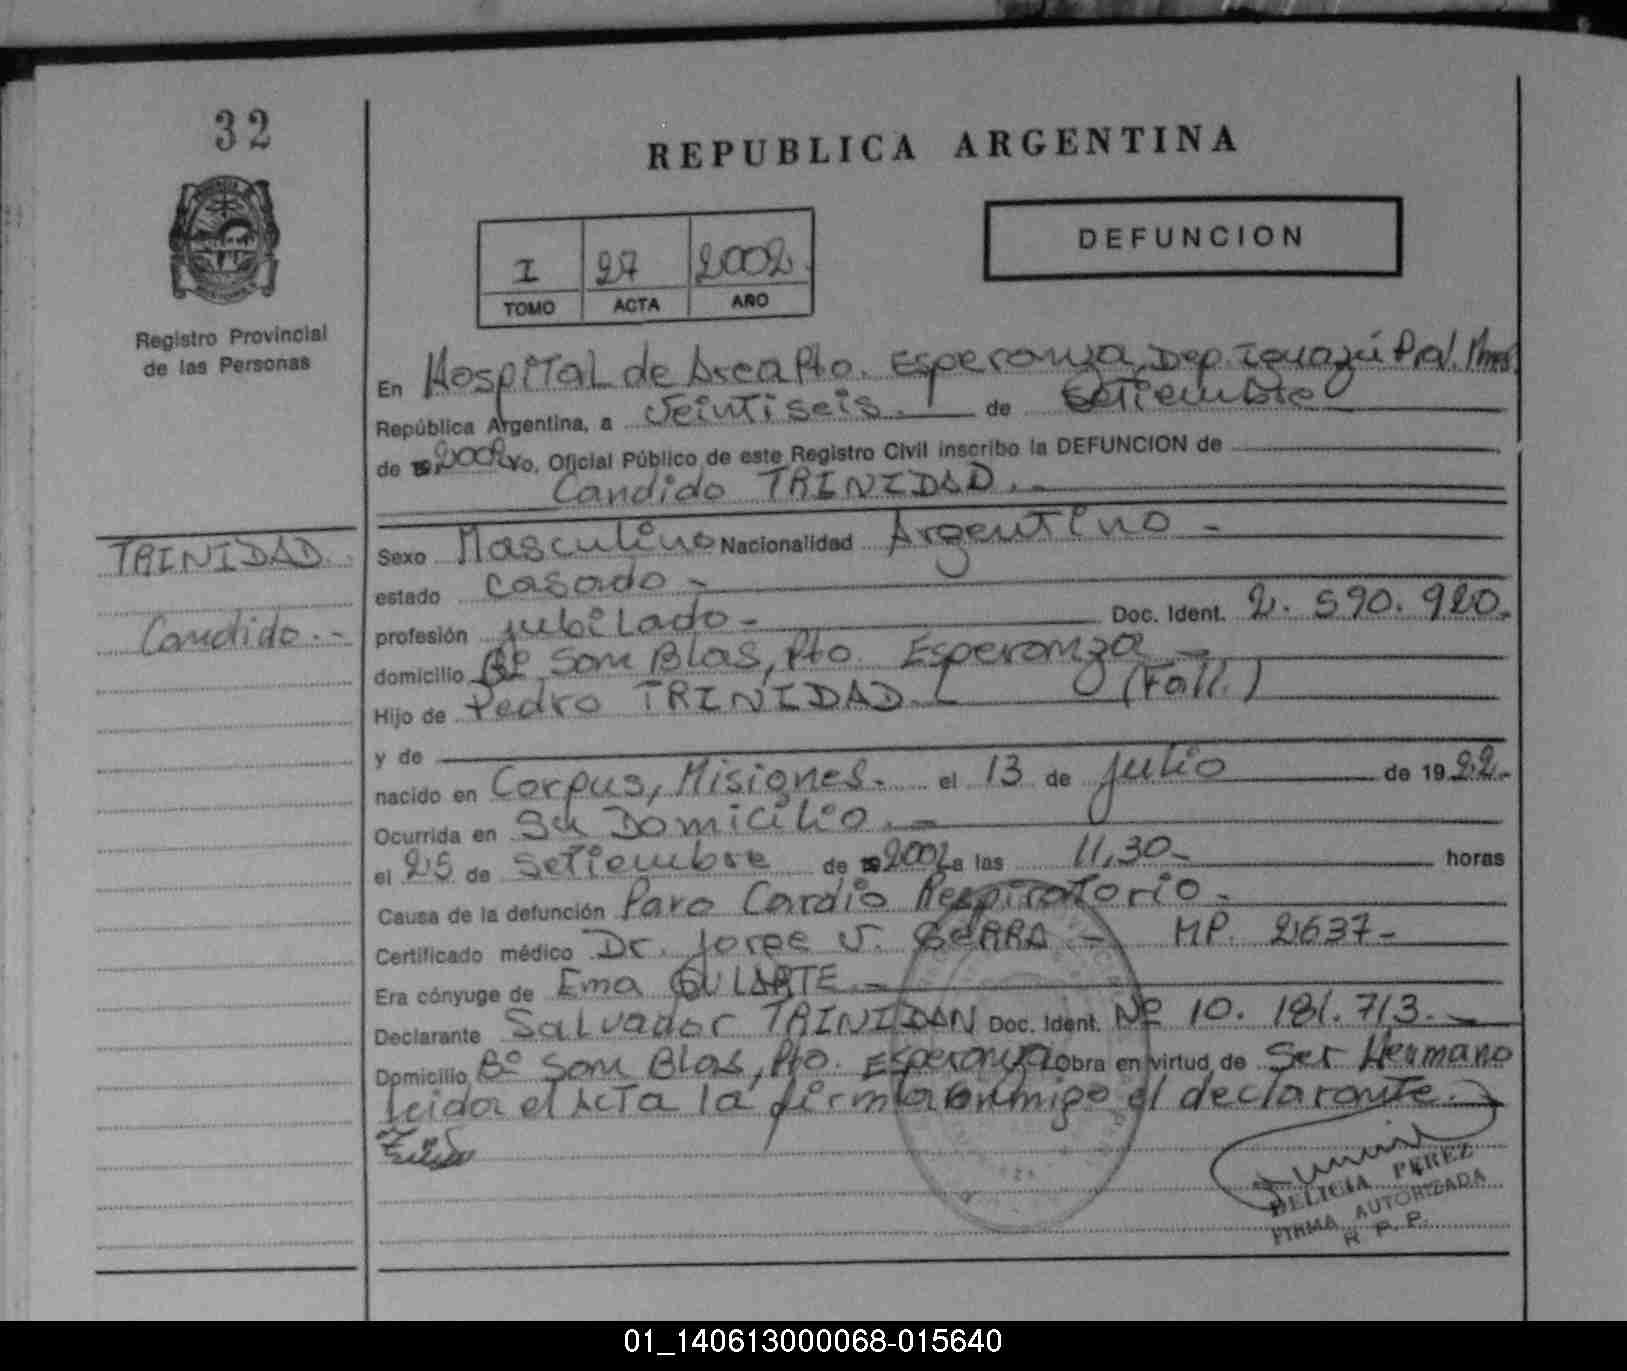 32
REPUBLICA ARGENTINA
DEFUNCION
I 27 2002.
TOMO ACTA AÑO
Registro Provincial
de las Personas
En Hospital de Area Pto. Esperanza, Dep. Iguazú
República Argentina, a Veintiseis. de Setiembre
de 2002 Yo, Oficial Público de este Registro Civil inscribo la DEFUNCION de
Candido TRINIDAD.-
TRINIDAD
Candido.-
Sexo Masculino Nacionalidad Argentino-
estado Casado-
profesión jubilado- Doc. Ident. 2.590.920.
domicilio Bº San Blas, Pto. Esperanza-
Hijo de Pedro TRINIDAD (Fall.)
y de
nacido en Corpus, Misiones. el 13 de julio de 1922.-
Ocurrida en Su Domicilio.-
el 25 de Setiembre de 2002 a las 11,30- horas
Causa de la defunción Paro Cardio Respiratorio.-
Certificado médico Dr. Jorge V. SERRA - MP. 2637-
Era cónyuge de Ema GULARTE.-
Declarante Salvador TRINIDAD Doc. Ident. Nº 10.181.713.-
Domicilio Bº San Blas, Pto. Esperanza obra en virtud de Ser Hermano
leida el Acta la firma conmigo el declarante.-
DELICIA PEREZ
FIRMA AUTORIZADA
R. P. P.
01_140613000068-015640